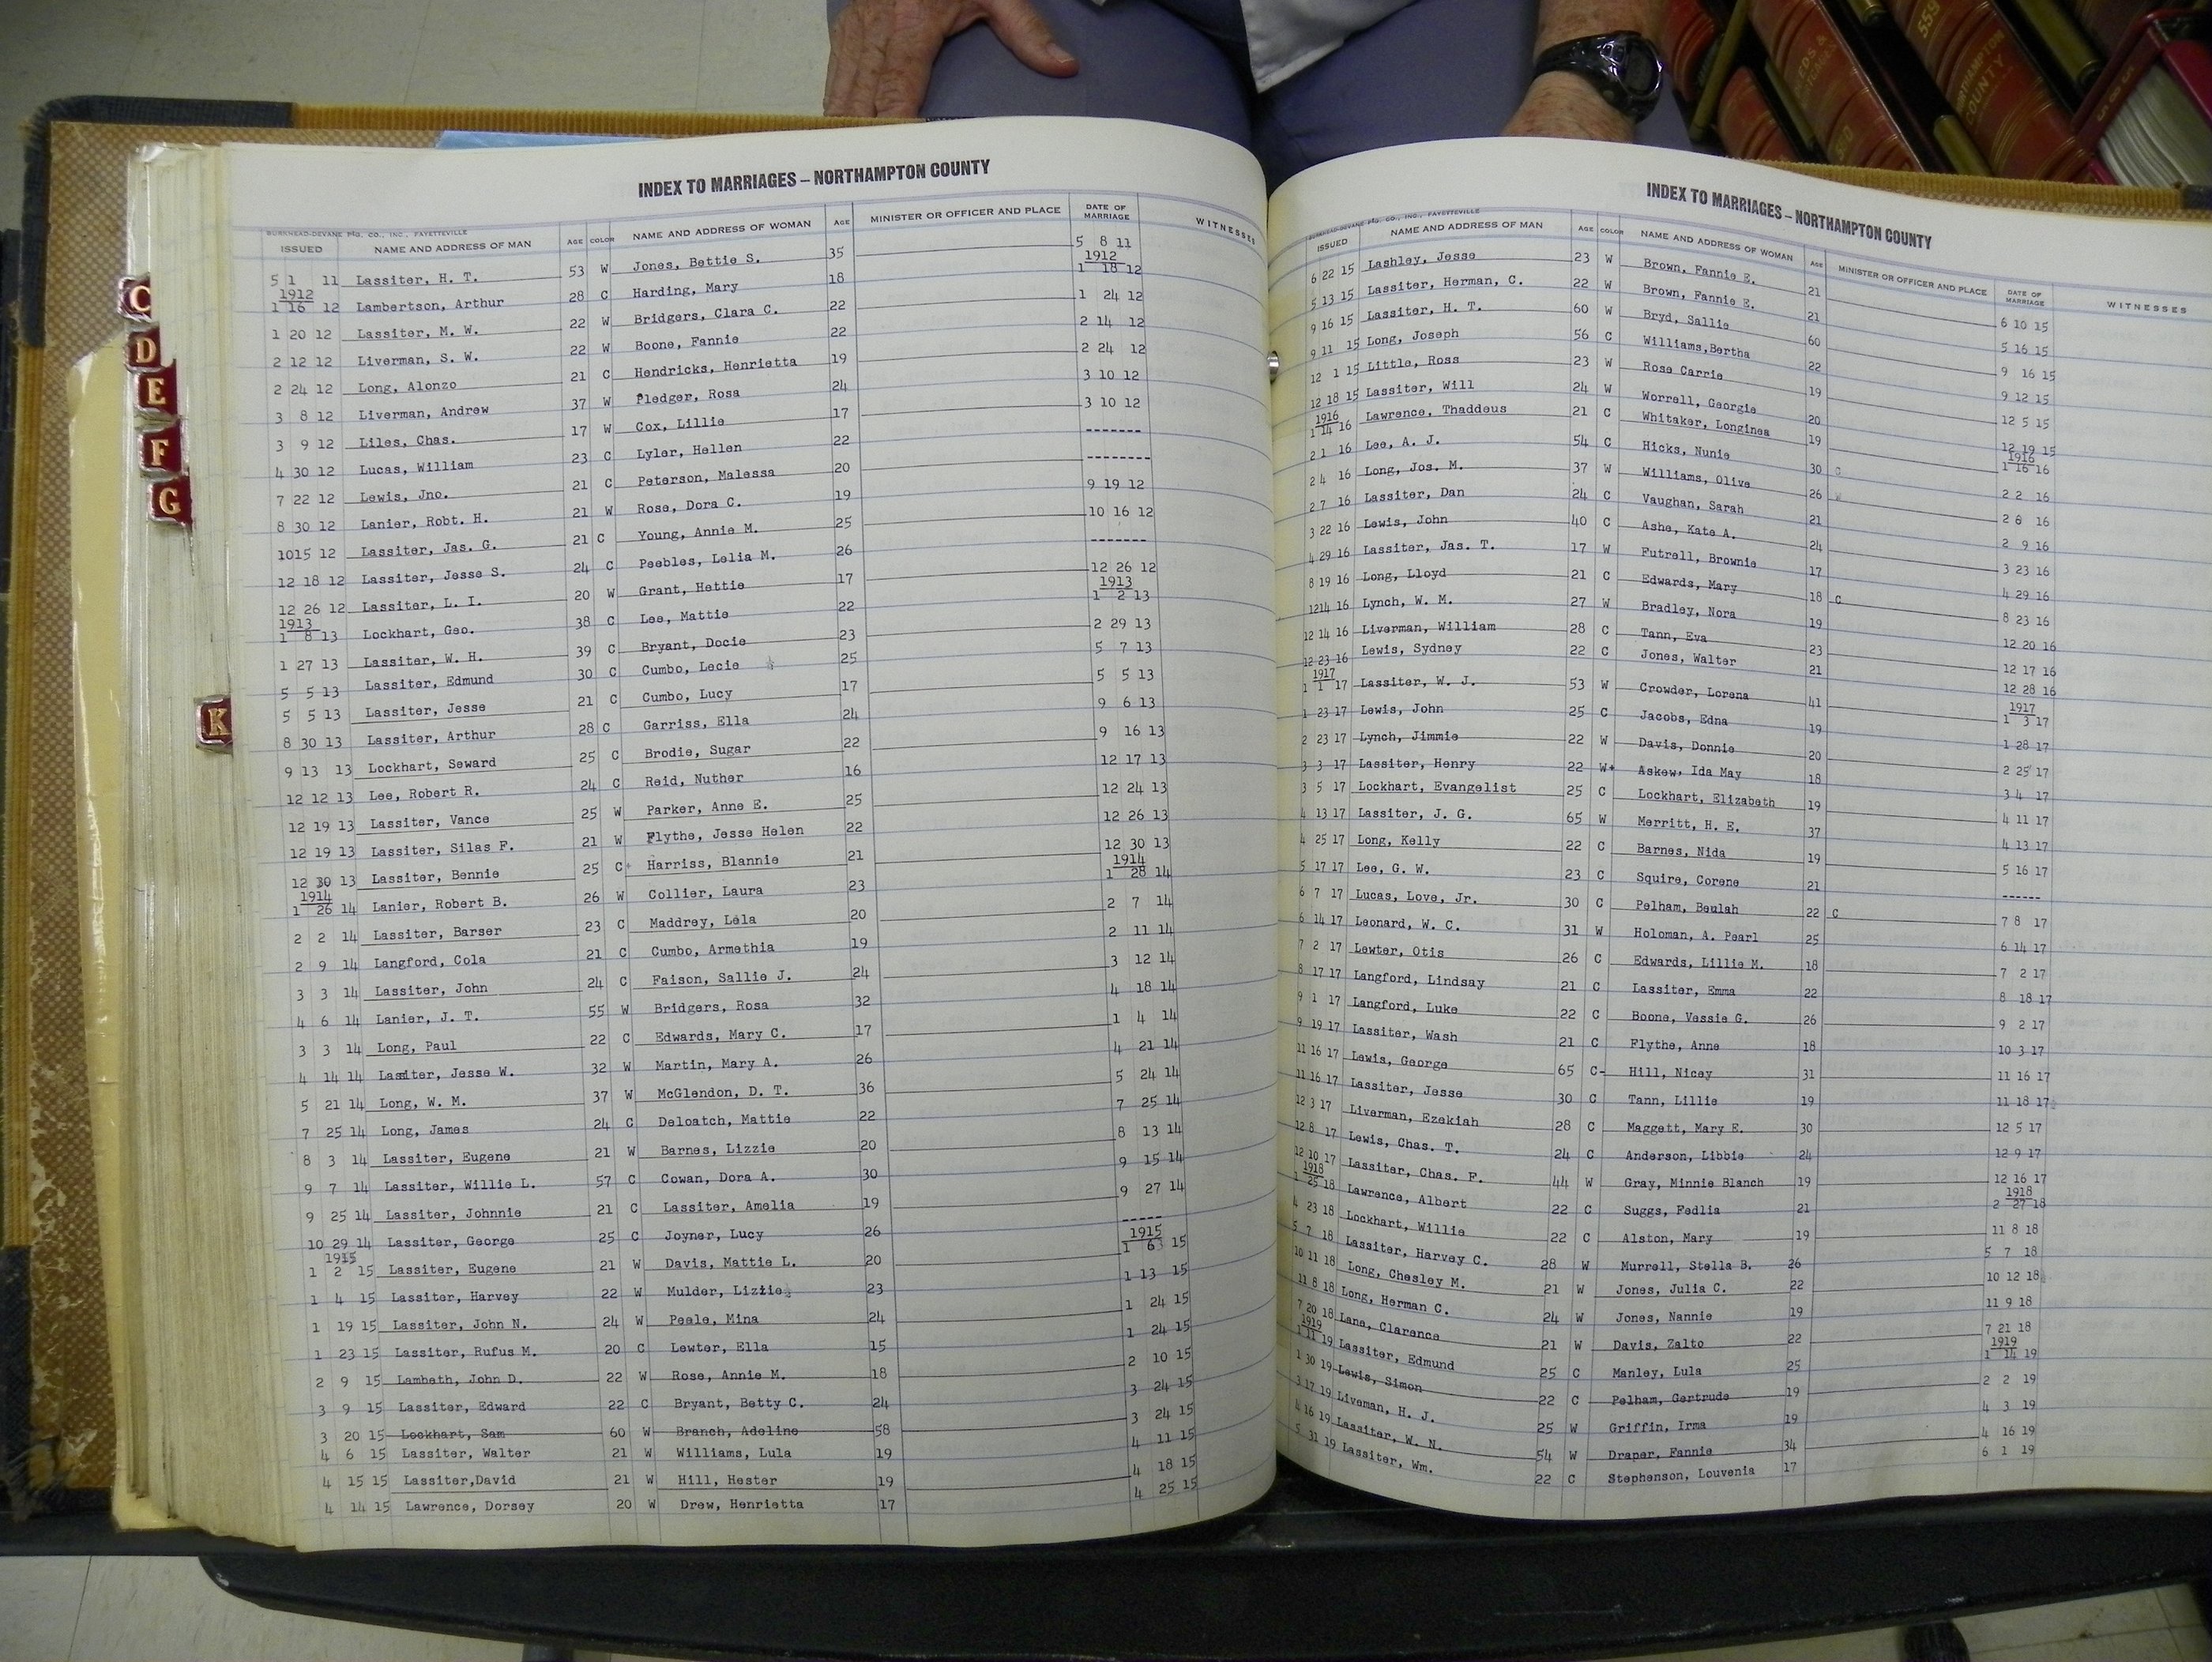 INDEX TO MARRIAGES – NORTHAMPTON COUNTY
BURKHEAD-DEVANE P'G. CO., INC., FAYETTEVILLE
ISSUED NAME AND ADDRESS OF MAN AGE COLOR NAME AND ADDRESS OF WOMAN AGE MINISTER OR OFFICER AND PLACE DATE OF MARRIAGE WITNESSES
5 1 11 Lassiter, H. T. 53 W Jones, Bettie S. 35 5 8 11
1912 1912
1 16 12 Lambertson, Arthur 28 C Harding, Mary 18 1 18 12
1 20 12 Lassiter, M. W. 22 W Bridgers, Clara C. 22 1 24 12
2 12 12 Liverman, S. W. 22 W Boone, Fannie 22 2 14 12
2 24 12 Long, Alonzo 21 C Hendricks, Henrietta 19 2 24 12
3 8 12 Liverman, Andrew 37 W Pledger, Rosa 24 3 10 12
3 9 12 Liles, Chas. 17 W Cox, Lillie 17 3 10 12
4 30 12 Lucas, William 23 C Lyler, Hellen 22 -------
7 22 12 Lewis, Jno. 21 C Peterson, Malessa 20 --------
8 30 12 Lanier, Robt. H. 21 W Rose, Dora C. 19 9 19 12
1015 12 Lassiter, Jas. G. 21 C Young, Annie M. 25 10 16 12
12 18 12 Lassiter, Jesse S. 24 C Peebles, Lelia M. 26 -------
12 26 12 Lassiter, L. I. 20 W Grant, Hettie 17 12 26 12
1913 1913
1 8 13 Lockhart, Geo. 38 C Lee, Mattie 22 1 2 13
1 27 13 Lassiter, W. H. 39 C Bryant, Docie 23 2 29 13
5 5 13 Lassiter, Edmund 30 C Cumbo, Lecie 25 5 7 13
5 5 13 Lassiter, Jesse 21 C Cumbo, Lucy 17 5 5 13
8 30 13 Lassiter, Arthur 28 C Garriss, Ella 24 9 6 13
9 13 13 Lockhart, Seward 25 C Brodie, Sugar 22 9 16 13
12 12 13 Lee, Robert R. 24 C Reid, Nuther 16 12 17 13
12 19 13 Lassiter, Vance 25 W Parker, Anne E. 25 12 24 13
12 19 13 Lassiter, Silas F. 21 W Flythe, Jesse Helen 22 12 26 13
12 30 13 Lassiter, Bennie 25 C Harriss, Blannie 21 12 30 13
1914 1914
1 26 14 Lanier, Robert B. 26 W Collier, Laura 23 1 28 14
2 2 14 Lassiter, Barser 23 C Maddrey, Lela 20 2 7 14
2 9 14 Langford, Cola 21 C Cumbo, Armethia 19 2 11 14
3 3 14 Lassiter, John 24 C Faison, Sallie J. 24 3 12 14
4 6 14 Lanier, J. T. 55 W Bridgers, Rosa 32 4 18 14
3 3 14 Long, Paul 22 C Edwards, Mary C. 17 1 4 14
4 14 14 Lassiter, Jesse W. 32 W Martin, Mary A. 26 4 21 14
5 21 14 Long, W. M. 37 W McGlendon, D. T. 36 5 24 14
7 25 14 Long, James 24 C Deloatch, Mattie 22 7 25 14
8 3 14 Lassiter, Eugene 21 W Barnes, Lizzie 20 8 13 14
9 7 14 Lassiter, Willie L. 57 C Cowan, Dora A. 30 9 15 14
9 25 14 Lassiter, Johnnie 21 C Lassiter, Amelia 19 9 27 14
10 29 14 Lassiter, George 25 C Joyner, Lucy 26 -----
1915 1915
1 2 15 Lassiter, Eugene 21 W Davis, Mattie L. 20 1 63 15
1 4 15 Lassiter, Harvey 22 W Mulder, Lizzie 23 1 13 15
1 19 15 Lassiter, John N. 24 W Peele, Mina 24 1 24 15
1 23 15 Lassiter, Rufus M. 20 C Lewter, Ella 15 1 24 15
2 9 15 Lambeth, John D. 22 W Rose, Annie M. 18 2 10 15
3 9 15 Lassiter, Edward 22 C Bryant, Betty C. 24 3 24 15
3 20 15 Lockhart, Sam 60 W Branch, Adeline 58 3 24 15
4 6 15 Lassiter, Walter 21 W Williams, Lula 19 4 11 15
4 15 15 Lassiter,David 21 W Hill, Hester 19 4 18 15
4 14 15 Lawrence, Dorsey 20 W Drew, Henrietta 17 4 25 15
INDEX TO MARRIAGES – NORTHAMPTON COUNTY
BURKHEAD-DEVANE P'G. CO., INC., FAYETTEVILLE
ISSUED NAME AND ADDRESS OF MAN AGE COLOR NAME AND ADDRESS OF WOMAN AGE MINISTER OR OFFICER AND PLACE DATE OF MARRIAGE WITNESSES
6 22 15 Lashley, Jesse 23 W Brown, Fannie E. 21 6 10 15
5 13 15 Lassiter, Herman, C. 22 W Brown, Fannie E. 21 5 16 15
9 16 15 Lassiter, H. T. 60 W Bryd, Sallie 60 9 16 15
9 11 15 Long, Joseph 56 C Williams,Bertha 22 9 12 15
12 1 15 Little, Ross 23 W Rose Carrie 19 12 5 15
12 18 15 Lassiter, Will 24 W Worrell, Georgie 20 12 19 15
1916 1916
1 14 16 Lawrence, Thaddeus 21 C Whitaker, Longinea 19 1 16 16
2 1 16 Lee, A. J. 54 C Hicks, Nunie 30 C 2 2 16
2 4 16 Long, Jos. M. 37 W Williams, Olive 26 W 2 8 16
2 7 16 Lassiter, Dan 24 C Vaughan, Sarah 21 2 9 16
3 22 16 Lewis, John 40 C Ashe, Kate A. 24 3 23 16
4 29 16 Lassiter, Jas. T. 17 W Futrell, Brownie 17 4 29 16
8 19 16 Long, Lloyd 21 C Edwards, Mary 18 C 8 23 16
1214 16 Lynch, W. M. 27 W Bradley, Nora 19 12 20 16
12 14 16 Liverman, William 28 C Tann, Eva 23 12 17 16
12 23 16 Lewis, Sydney 22 C Jones, Walter 21 12 28 16
1917 1917
1 1 17 Lassiter, W. J. 53 W Crowder, Lorena 41 1 3 17
1 23 17 Lewis, John 25 C Jacobs, Edna 19 1 28 17
2 23 17 Lynch, Jimmie 22 W Davis, Donnie 20 2 25 17
3 3 17 Lassiter, Henry 22 W Askew, Ida May 18 3 4 17
3 5 17 Lockhart, Evangelist 25 C Lockhart, Elizabeth 19 4 11 17
4 13 17 Lassiter, J. G. 65 W Merritt, H. E. 37 4 13 17
4 25 17 Long, Kelly 22 C Barnes, Nida 19 5 16 17
5 17 17 Lee, G. W. 23 C Squire, Corene 21 ------
6 7 17 Lucas, Love, Jr. 30 C Pelham, Beulah 22 C 7 8 17
6 14 17 Leonard, W. C. 31 W Holoman, A. Pearl 25 6 14 17
7 2 17 Lewter, Otis 26 C Edwards, Lillie M. 18 7 2 17
8 17 17 Langford, Lindsay 21 C Lassiter, Emma 22 8 18 17
9 1 17 Langford, Luke 22 C Boone, Vessie G. 26 9 2 17
9 19 17 Lassiter, Wash 21 C Flythe, Anne 18 10 3 17
11 16 17 Lewis, George 65 C- Hill, Nicey 31 11 16 17
11 16 17 Lassiter, Jesse 30 C Tann, Lillie 19 11 18 17
12 3 17 Liverman, Ezekiah 28 C Maggett, Mary E. 30 12 5 17
12 8 17 Lewis, Chas. T. 24 C Anderson, Libbie 24 12 9 17
12 10 17 Lassiter, Chas. F. 44 W Gray, Minnie Blanch 19 12 16 17
1918 1918
1 25 18 Lawrence, Albert 22 C Suggs, Fedlia 21 2 27 18
4 23 18 Lockhart, Willie 22 C Alston, Mary 19 11 8 18
5 7 18 Lassiter, Harvey C. 28 W Murrell, Stella B. 26 5 7 18
10 11 18 Long, Chesley M. 21 W Jones, Julia C. 22 10 12 18
11 8 18 Long, Herman C. 24 W Jones, Nannie 19 11 9 18
7 20 18 Lane, Clarence 21 W Davis, Zalto 22 7 21 18
1919 1919
1 11 19 Lassiter, Edmund 25 C Manley, Lula 25 1 14 19
1 30 19 Lewis, Simon 22 C Pelham, Gertrude 19 2 2 19
3 17 19 Liveman, H. J. 25 W Griffin, Irma 19 4 3 19
4 16 19 Lassiter, W. N. 54 W Draper, Fannie 34 4 16 19
5 31 19 Lassiter, Wm. 22 C Stephenson, Louvenia 17 6 1 19
C
D
E
F
G
K
559
COUNTY